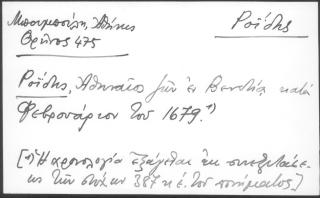 Μπουμπούλη, Αθήνης
Θρῆνος 475
Ροΐδης
Ροΐδης, Ἀθηναῖος ζῶν ἐν Βενετίᾳ κατὰ
Φεβρουάριον τοῦ 1679.¹⁾
[¹⁾ Ἡ χρονολογία ἐξάγεται ἐκ συνεξετάσε-
ως τῶν στίχων 387 κ.ἑ. τοῦ ποιήματος]